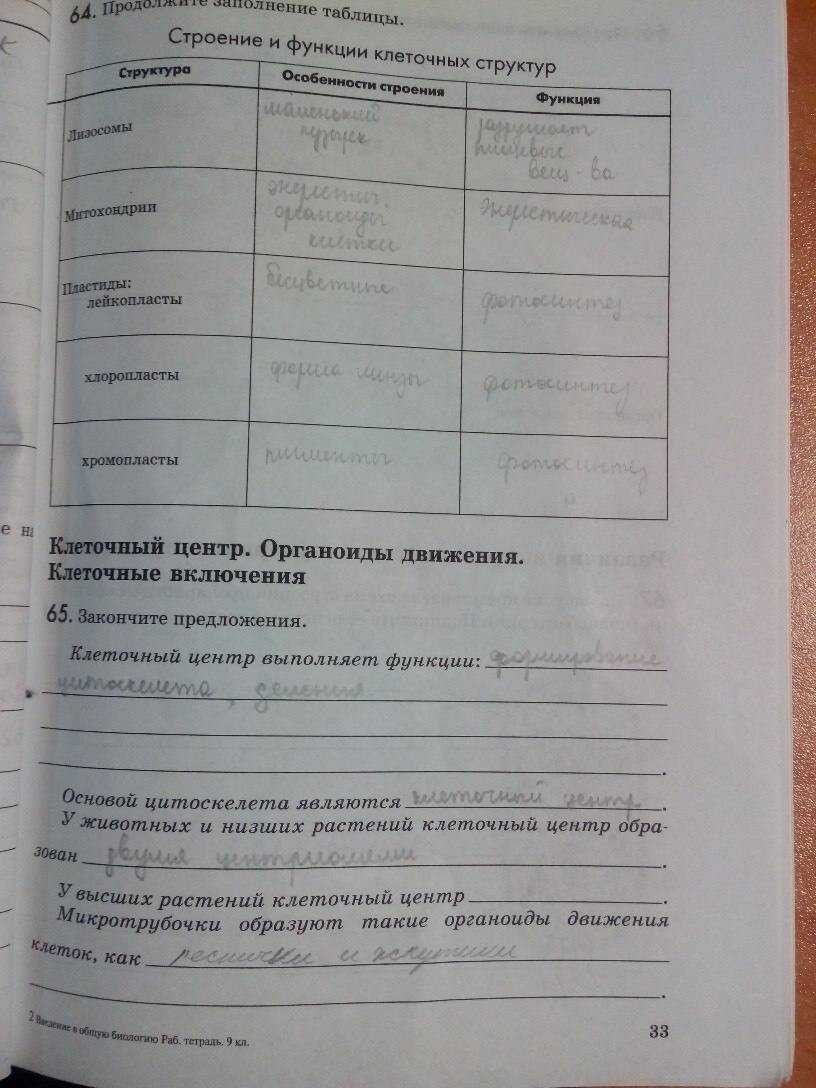 64. Продолжите заполнение таблицы.
Строение и функции клеточных структур
Структура Особенности строения Функция
Лизосомы
маленький
пузырек
разрушает
пищевые
вещ-ва
Митохондрии
энергетич.
органоиды
клетки
Энергетическая
Пластиды:
лейкопласты
бесцветные
фотосинтез
хлоропласты
форма линзы
фотосинтез
хромопласты
пигменты
фотосинтез
е на
Клеточный центр. Органоиды движения.
Клеточные включения
65. Закончите предложения.
Клеточный центр выполняет функции: формирование
цитоскелета, деления
.
Основой цитоскелета являются клеточный центр.
У животных и низших растений клеточный центр обра-
зован двумя центриолями.
У высших растений клеточный центр .
Микротрубочки образуют такие органоиды движения
клеток, как реснички и жгутики
.
2 Введение в общую биологию Раб. тетрадь. 9 кл.
33